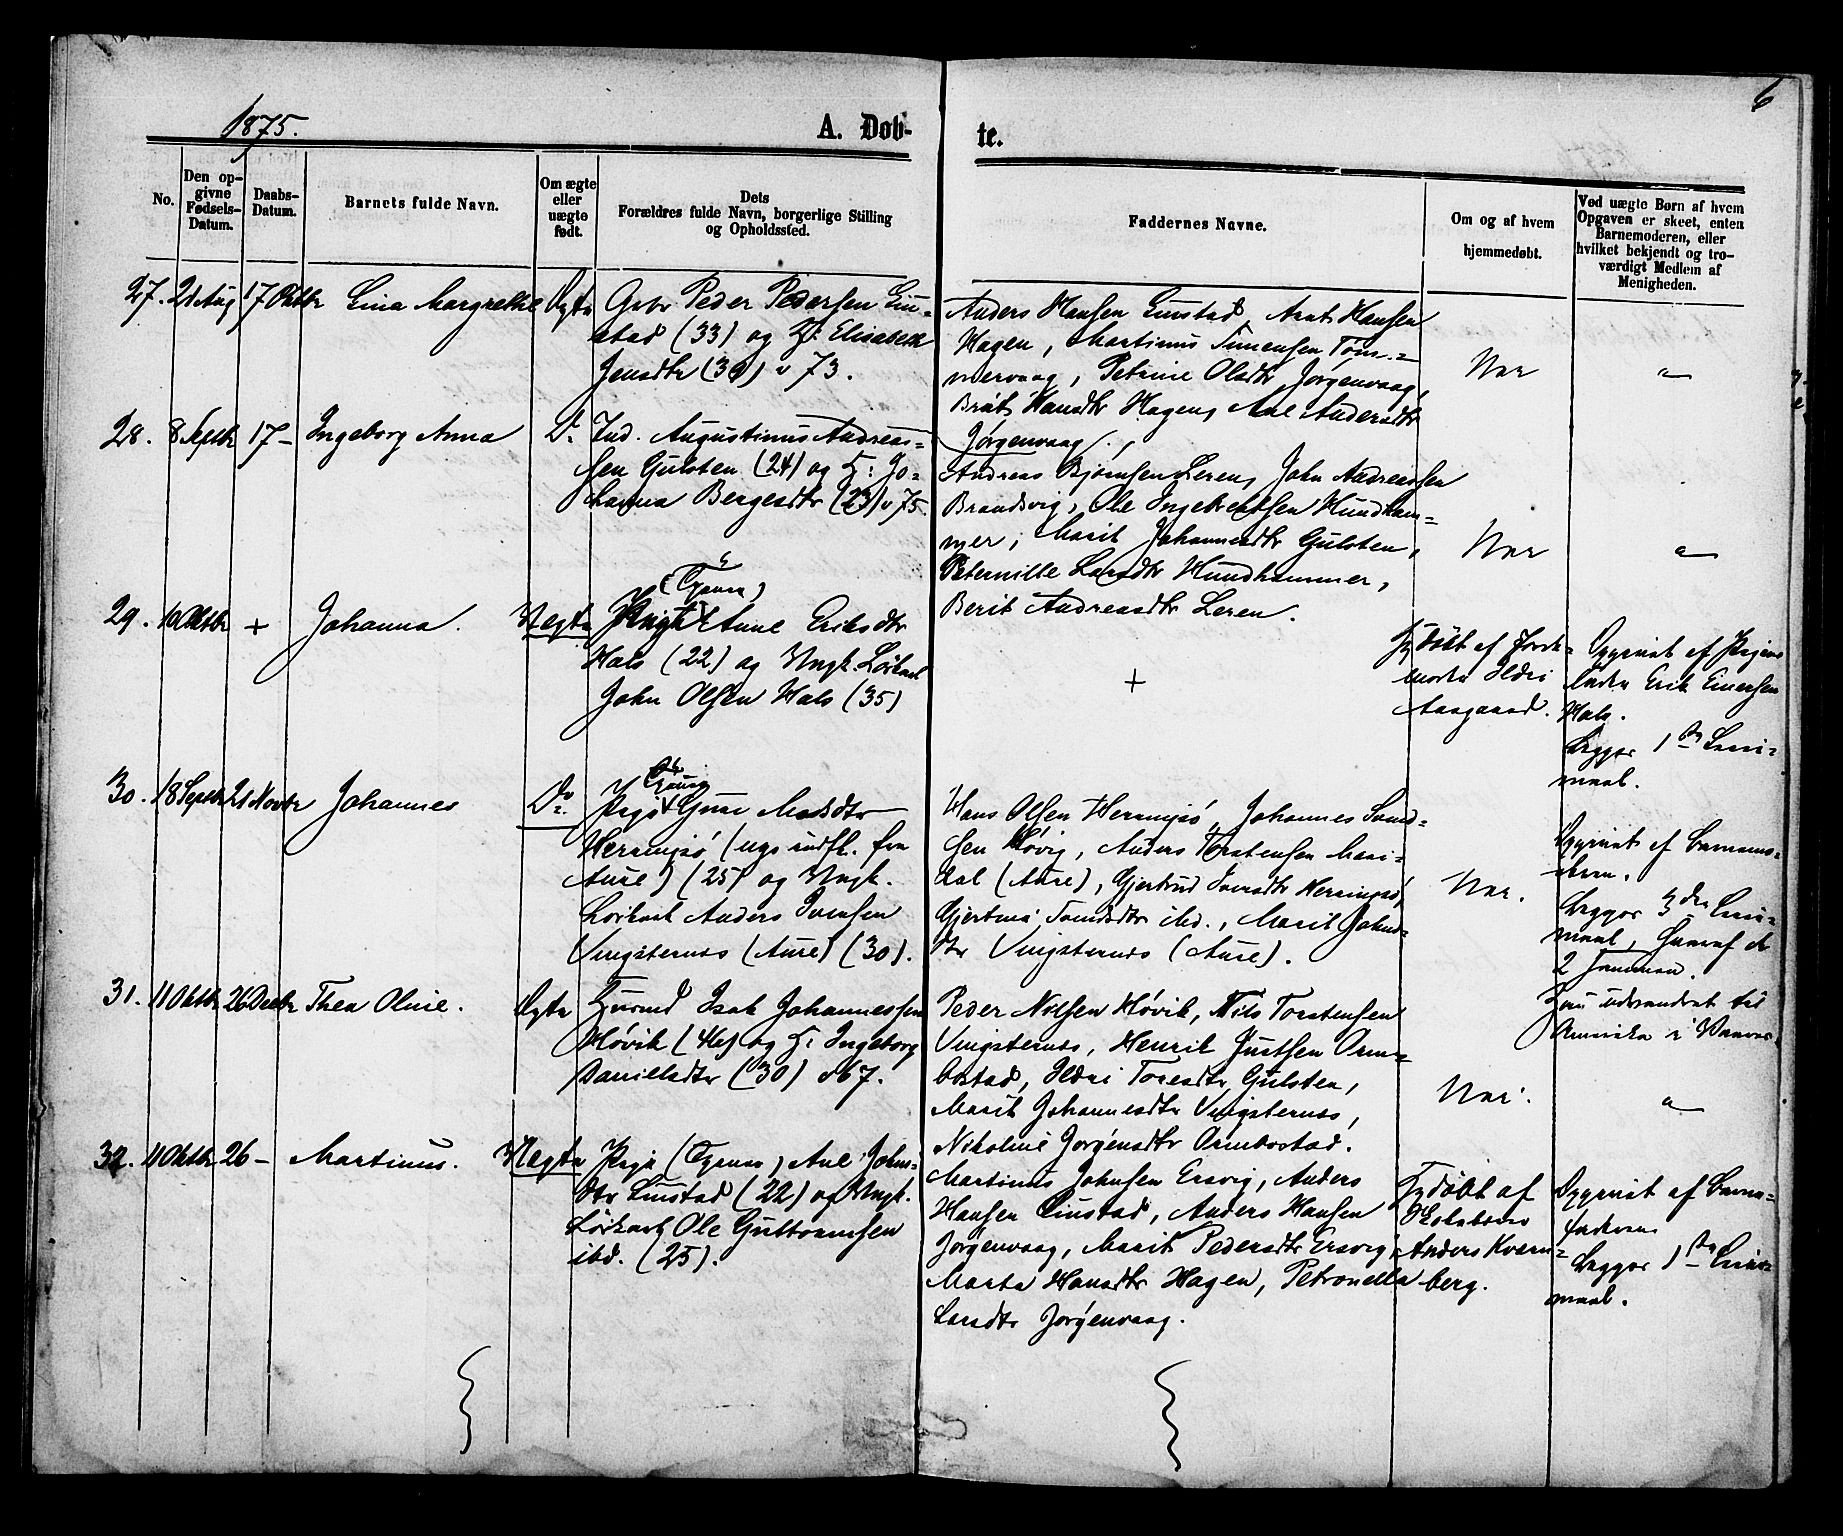 6
1875.
A. Døb-
te.
No.
Den op-
givne
Fødsels-
Datum.
Daabs-
Datum.
Barnets fulde Navn.
Om ægte
eller
uægte
født.
Dets
Forældres fulde Navn, borgerlige Stilling
og Opholdssted.
Faddernes Navne.
Om og af hvem
hjemmedøbt.
Ved uægte Børn af hvem
Opgaven er skeet, enten
Barnemoderen, eller
hvilket bekjendt og tro-
værdigt Medlem af
Menigheden.
27. 21 Aug 17 Oktbr Lina Margrethe Ægte
Peder Pedersen Liu-
stad (33) og H: Elisabeth
Jensdtr (30) v 73.
Anders Hansen Liustad, Hansen
Hagen, Martinus Simensen Tøm-
mervaag, Petrine Olsdtr Jørgenvaag,
Bråt Hansdtr Hagen, Ane Andersdtr
Jørgenvaag.
Nei
"
28. 8 Septbr 17 - Ingeborg Anna Do
Ind. Augustinus Andreas-
sen Gulsten (24) og H: Jo-
hanna Bergesdtr (23) v 75.
Andreas Bjørnsen Leren, John Andreassen
Brandsvig, Ole Ingebrektsen Hundham-
mer, Marit Johannesdtr Gulsten,
Peternille Larsdtr Hundhammer,
Berit Andreasdtr Leren.
Nei
"
29. 10 Oktbr + Johanna. Uegte
Pige Ane Eriksdtr
Hals (22) og Ungk. Løskarl
John Olsen Hals (35)
+
Hjdøbt af Jord-
moder Ildri
Aasgaard.
Opgivet af Pigens
Fader Erik Einersen
Hals.
Begges 1ste Leier-
maal.
30. 18 Septbr 21 Novbr Johannes Do
Pige Guri Madsdtr
Herningsø (nys indfl. fra
Aure) (25) og Ungk.
Løskarl Anders Ivensen
Vingsternes (Aure) (30).
Hans Olsen Herningsø, Johannes Sivert-
sen Høvig, Anders Torstensen Mari-
dal (Aure), Gjertrud Iversdtr Herningsø,
Gjertine ibd., Marit Johns-
dtr Vingsternes (Aure).
Nei.
Opgivet af Barnemo-
deren.
Begges 3die Leier-
maal, hvoraf de
2 sammen.
Han udvandret til
Amerika i Vaares
31. 11 Oktbr 26 Decbr Thea Oline. Ægte
Husmd Isak Johannessen
Høvik (46) og H: Ingeborg
Danielsdtr (30) v 67.
Peder Nilsen Høvik, Nils Torstensen
Vingsternes, Henrik Justsen Orm-
bostad, Ildri Toresdtr Gulsten,
Marit Johannesdtr Vingsternes,
Nikoline Jørgensdtr Ormbostad.
Nei.
"
32. 11 Oktbr 26 - Martinus. Uegte
Pige (Tjener) Ane Johns-
dtr Liustad (22) og Ungk.
Løskarl Ole Guttormsen
ibd. (25).
Martinus Johnsen Ersvig, Anders
Hansen Liustad, Anders Hansen
Jørgenvaag, Marit Pedersdtr Ersvig,
Marta Hansdtr Hagen, Petronella
Larsdtr Jørgenvaag.
Hjdøbt af
Skolelærer
Anders Kvern-
berg.
Opgivet af Barne-
faderen
Begges 1ste Leier-
maal.